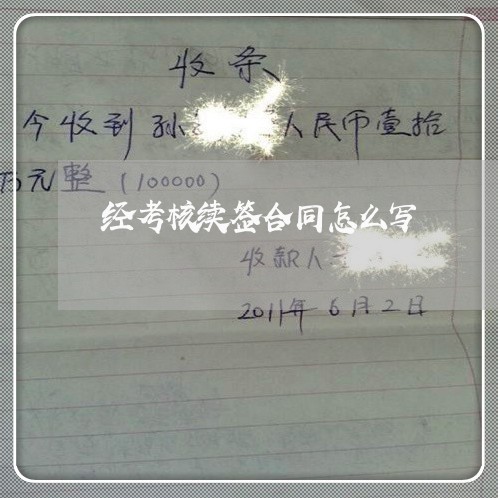 收条
今收到孙 人民币壹拾
万元整(100000)
经考核续签合同怎么写
收款人
2011年6月2日